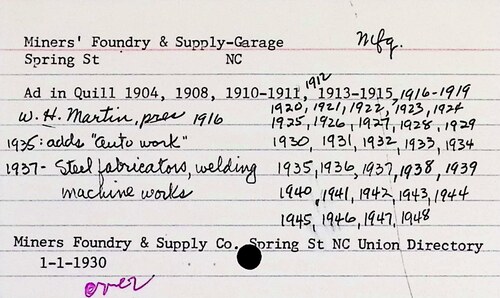 Miners' Foundry & Supply-Garage Mfg.
Spring St NC
Ad in Quill 1904, 1908, 1910-1911, 1912 1913-1915, 1916-1919
W. H. Martin, pres 1916 1920, 1921, 1922, 1923, 1924
1925, 1926, 1927, 1928, 1929
1935: adds "auto work" 1930, 1931, 1932, 1933, 1934
1937- Steel fabricators, welding 1935, 1936, 1937, 1938, 1939
machine works 1940, 1941, 1942, 1943, 1944
1945, 1946, 1947, 1948
Miners Foundry & Supply Co. Spring St NC Union Directory
1-1-1930
over